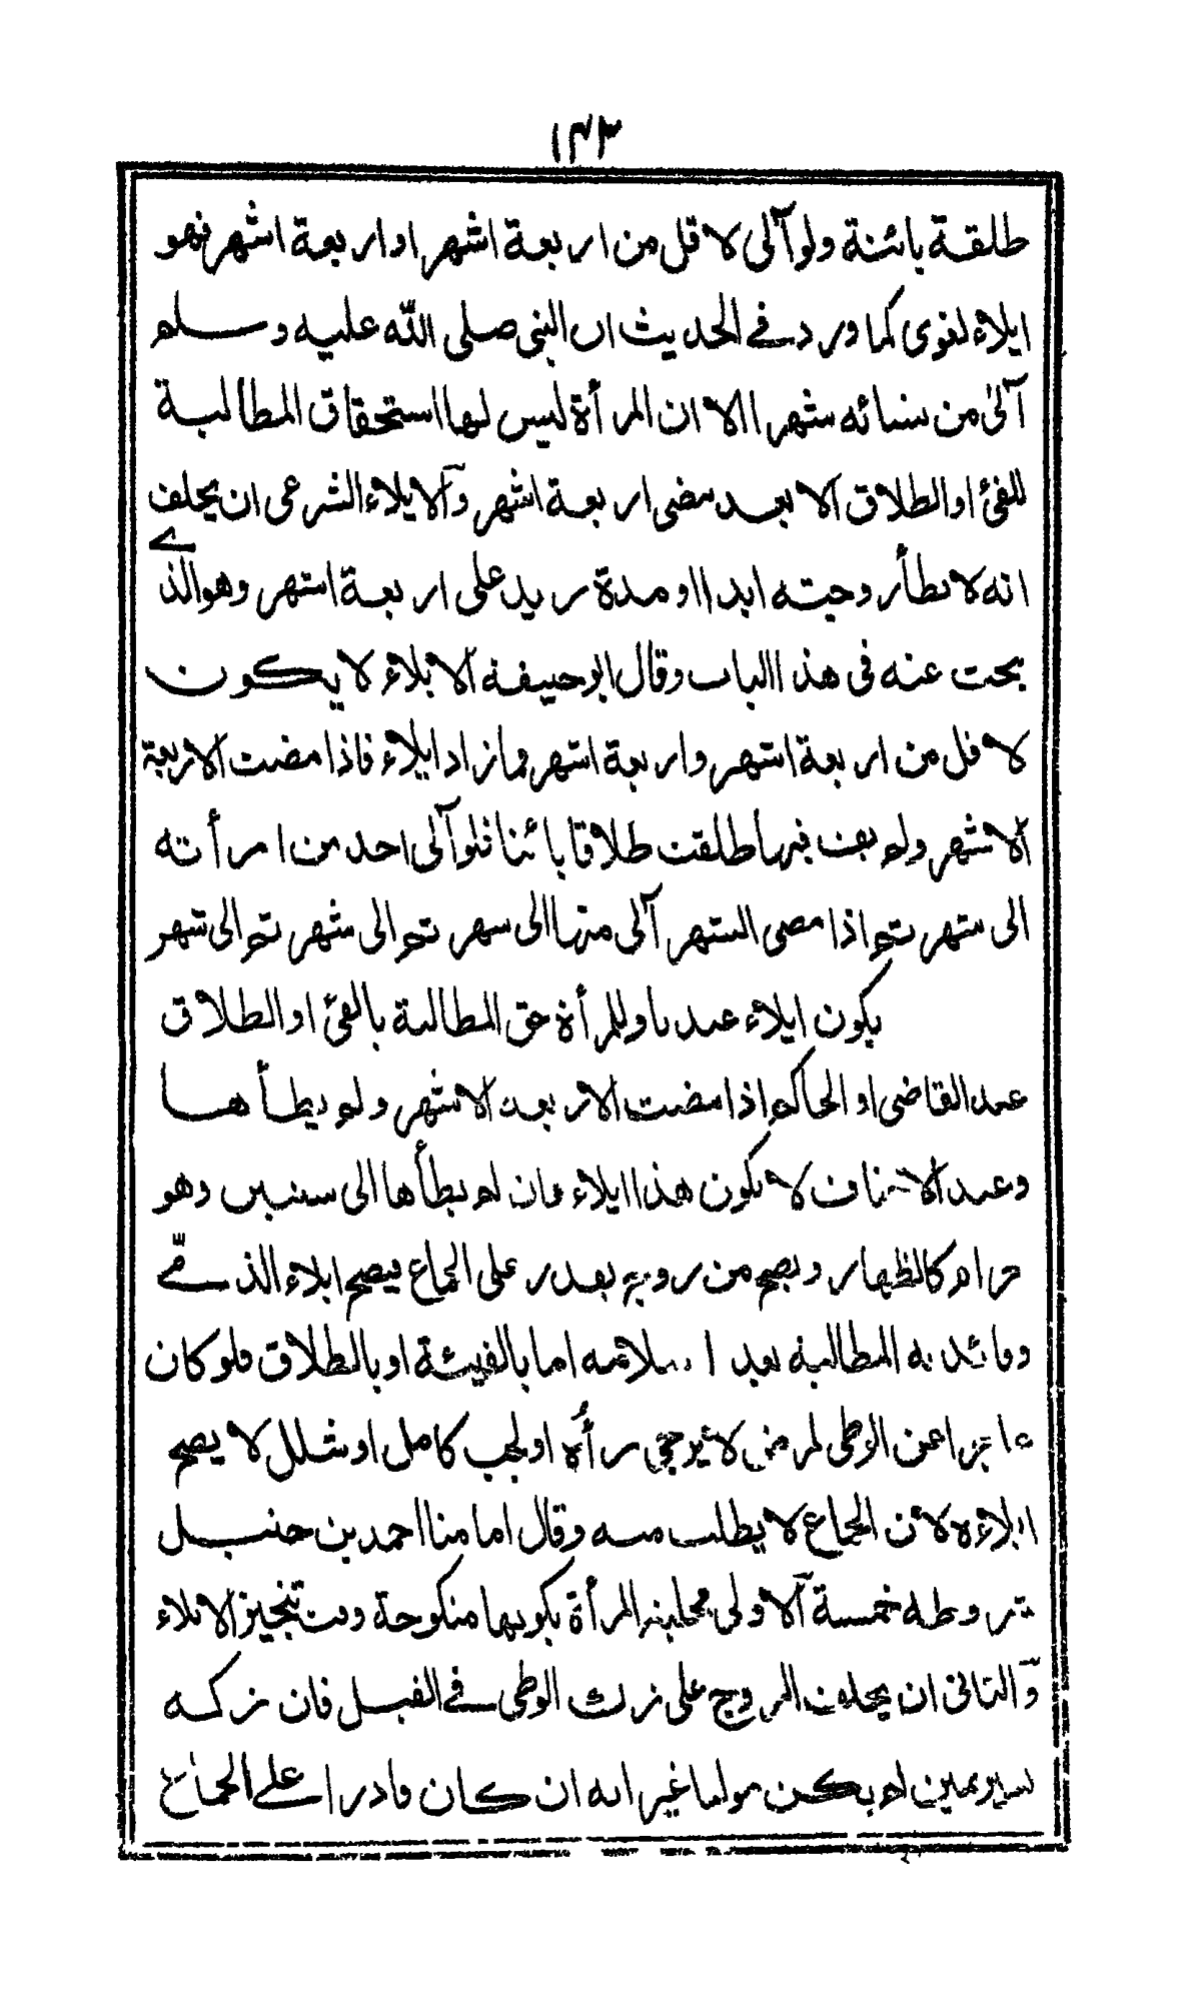 ١٤٣
طلقة بائنة ولو آلى لاقل من اربعة اشهر او اربعة اشهر فهو
ايلاء لغوى كما ورد في الحديث ان النبي صلى الله عليه وسلم
آلى من نسائه شهرا الا ان المرأة ليس لها استحقاق المطالبة
للفئ او الطلاق الا بعد مضى اربعة اشهر والايلاء الشرعى ان يحلف
انه لا يطأ زوجته ابدا او مدة تزيد على اربعة اشهر وهو الذي
بحث عنه فى هذا الباب وقال ابو حنيفة الايلاء لا يكون
لاقل من اربعة اشهر واربعة اشهر فما زاد ايلاء فاذا مضت الاربعة
الاشهر ولم يف فيها طلقت طلاقا بائنا فلو آلى احد من امرأته
الى شهر ثم اذا مضى الشهر آلى منها الى شهر ثم الى شهر ثم الى شهر
يكون ايلاء عندنا وللمرأة حق المطالبة بالفئ او الطلاق
عند القاضى او الحاكم اذا مضت الاربعة الاشهر ولم يطأها
وعند الاحناف لا يكون هذا ايلاء وان لم يطأها الى سنين وهو
حرام كالظهار ويصح من زوج يقدر على الجماع فيصح ايلاء الذمّي
وفائدته المطالبة بعد اسلامه اما بالفيئة او بالطلاق فلو كان
عاجزا عن الوطى لمرض لا يرجى برأه او لجب كامل او شلل لا يصح
ايلاءه لان الجماع لا يطلب منه وقال امامنا احمد بن حنبل
شروطه خمسة الاولى محلية المرأة بكونها منكوحة وقت تنجيز الايلاء
والثانى ان يحلف الزوج على ترك الوطى في القبل فان تركه
بغير يمين لم يكن موليا غير انه ان كان قادرا على الجماع